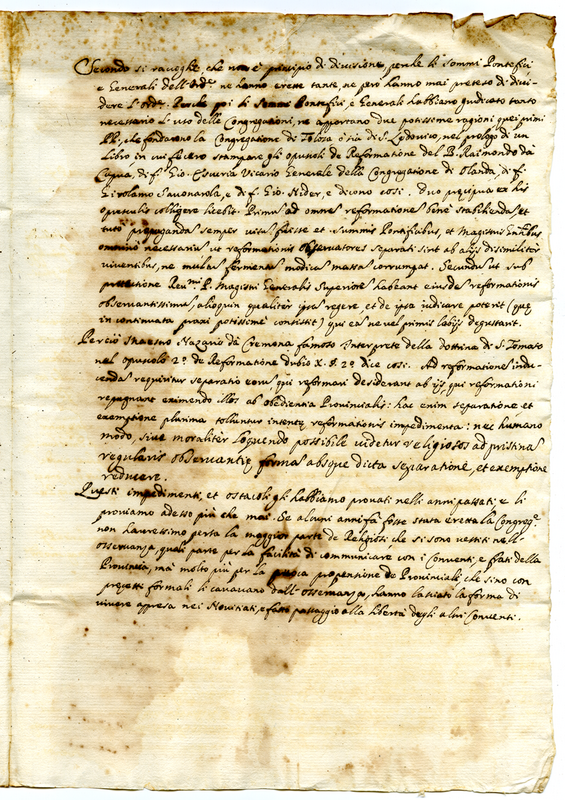 Secondo si raccoglie che non è principio di divisione, perche li Sommi Pontefici
e Generali dell'Ord.e ne hanno erette tante, ne però hanno mai preteso di divi-
dere l'Ord.e. Perche poi li Sommi Pontefici, e Generali habbiano giudicato tanto
necessario l'uso delle Congregationi, ne apportano due potissime ragioni quei primi
PP., che fondarono la Congregatione di Tolosa ò sia di S. Lodovico, nel prologo di un
libro in cui fecero stampare gli opusculi de Reformatione del B. Raimondo da
Capua, di f. Gio. Vicario Generale della Congregatione di Olanda, di f.
Girolamo Savonarola, e di f. Gio. Nider, e dicono così. Duo præcipua ex his
opusculis colligere licebit. Primus ad omnes reformationes bene stabiliendas, et
tuto propagandas semper visus fuisse et summis Pontificibus, et Magistris Gnalibus
omnino necessarius ut reformationis observatores separati sint ab alijs dissimiliter
viventibus, ne multas fermentus modicus massas corrumpat. Secundus ut sub
protectione Reu.mi P. Magistri Generalis Superiores habeant eiusdes reformationis
observantissimus, alioquin qualiter ipsas regere, et de ipsa iudicare poterit (quæ
in continuata praxi potissime consistit) qui eas ne vel primis labijs degustarit.
Perciò Maestro Nazario da Cremona famoso Interprete della dottrina di S. Tomaso
nel opuscolo 2.o de Reformatione dubio X. §. 2.o dice così. Ad reformationes indu-
cendas requiritur separatio eorus, qui reformari desiderans ab ijs, qui reformationi
repugnant eximendo illos ab obedientia Provincialis: hac enim separatione et
exemptione plurima tolluntur intentæ reformationis impedimenta: nec humano
modo, sive moraliter loquendo possibile videtur religiosos ad pristinas
regularis observantiæ formas absque dicta separatione, et exemptione
reducere.
Questi impedimenti, et ostacoli gli habbiamo provati nelli anni passati, e li
proviamo adesso più che mai. Se alcuni anni fa fosse stata eretta la Congreg.e
non haveressimo persa la maggior parte de Religiosi che si sono vestiti nell'
osservanza, quali parte per la facilità di communicare con i Conventi, e frati della
Provincia, mà molto più per la propensione de Provinciali che sino con
precetti formali li cavavano dall'osservanza, hanno lasciato la forma di
vivere appresa nei Novitiati, e fatto passaggio alla libertà degli altri Conventi.